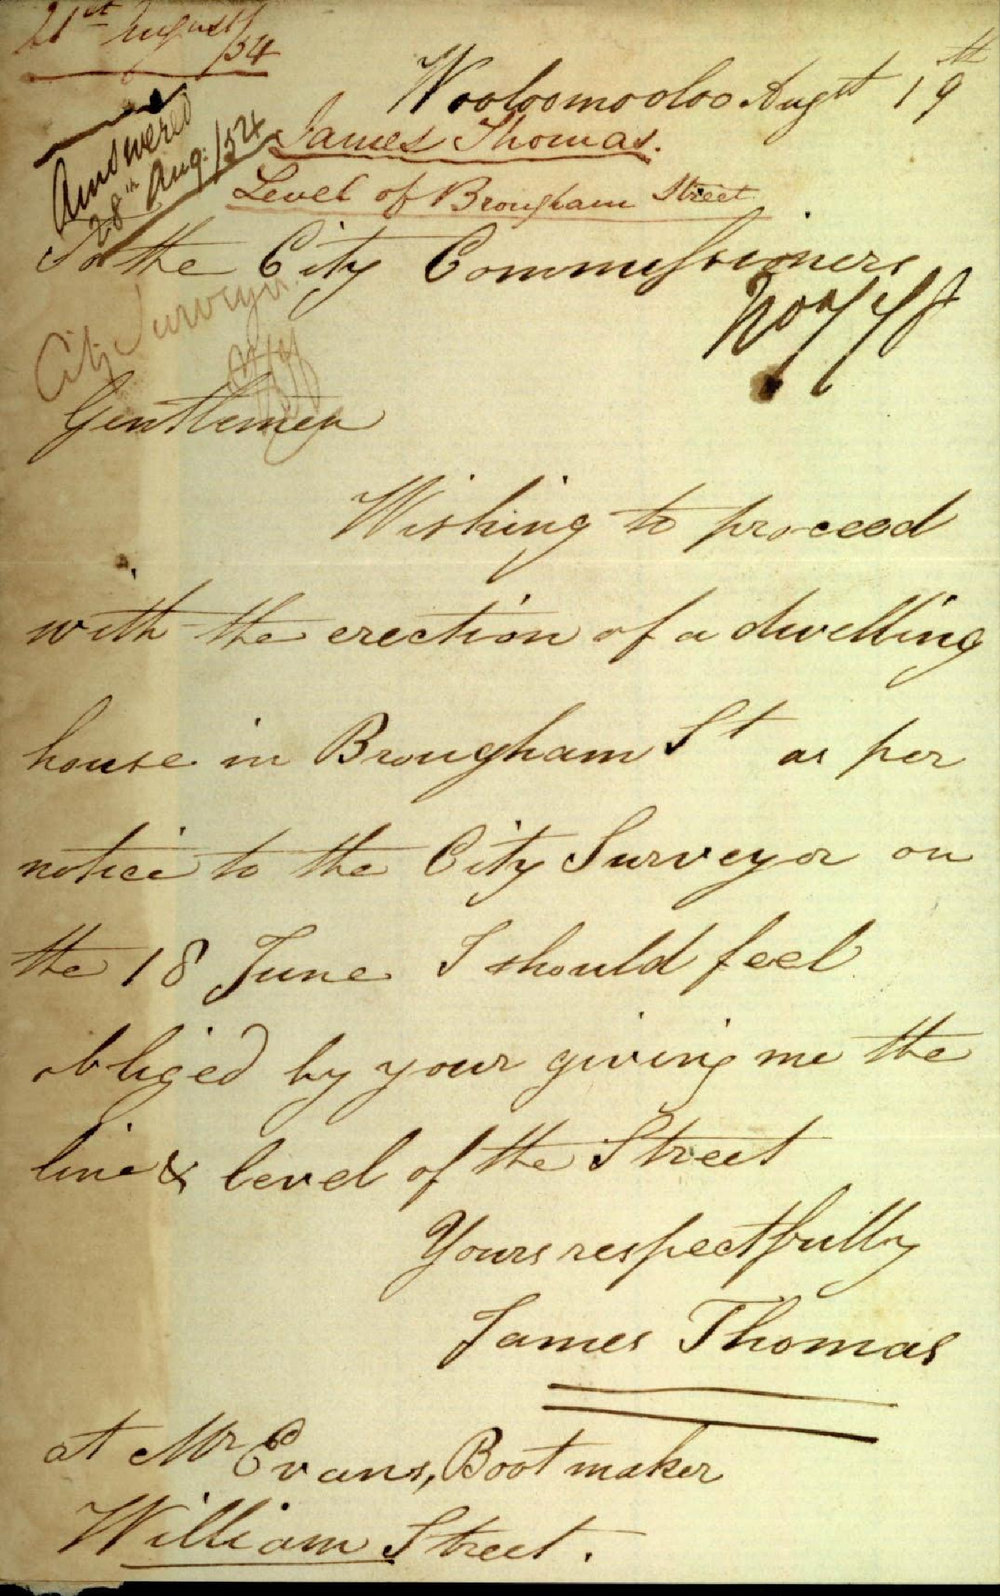 21st August/54
Wooloomooloo Augst 19th
Answered
28th Aug:/54
James Thomas.
Level of Brougham Street
To the City Commissioners
City Surveyor
No 778
Gentlemen
Wishing to proceed
with the erection of a dwelling
house in Brougham St as per
notice to the City Surveyor on
the 18 June I should feel
obliged by your giving me the
line & level of the Street
Yours respectfully
James Thomas
at Mr Evans, Boot maker
William Street.